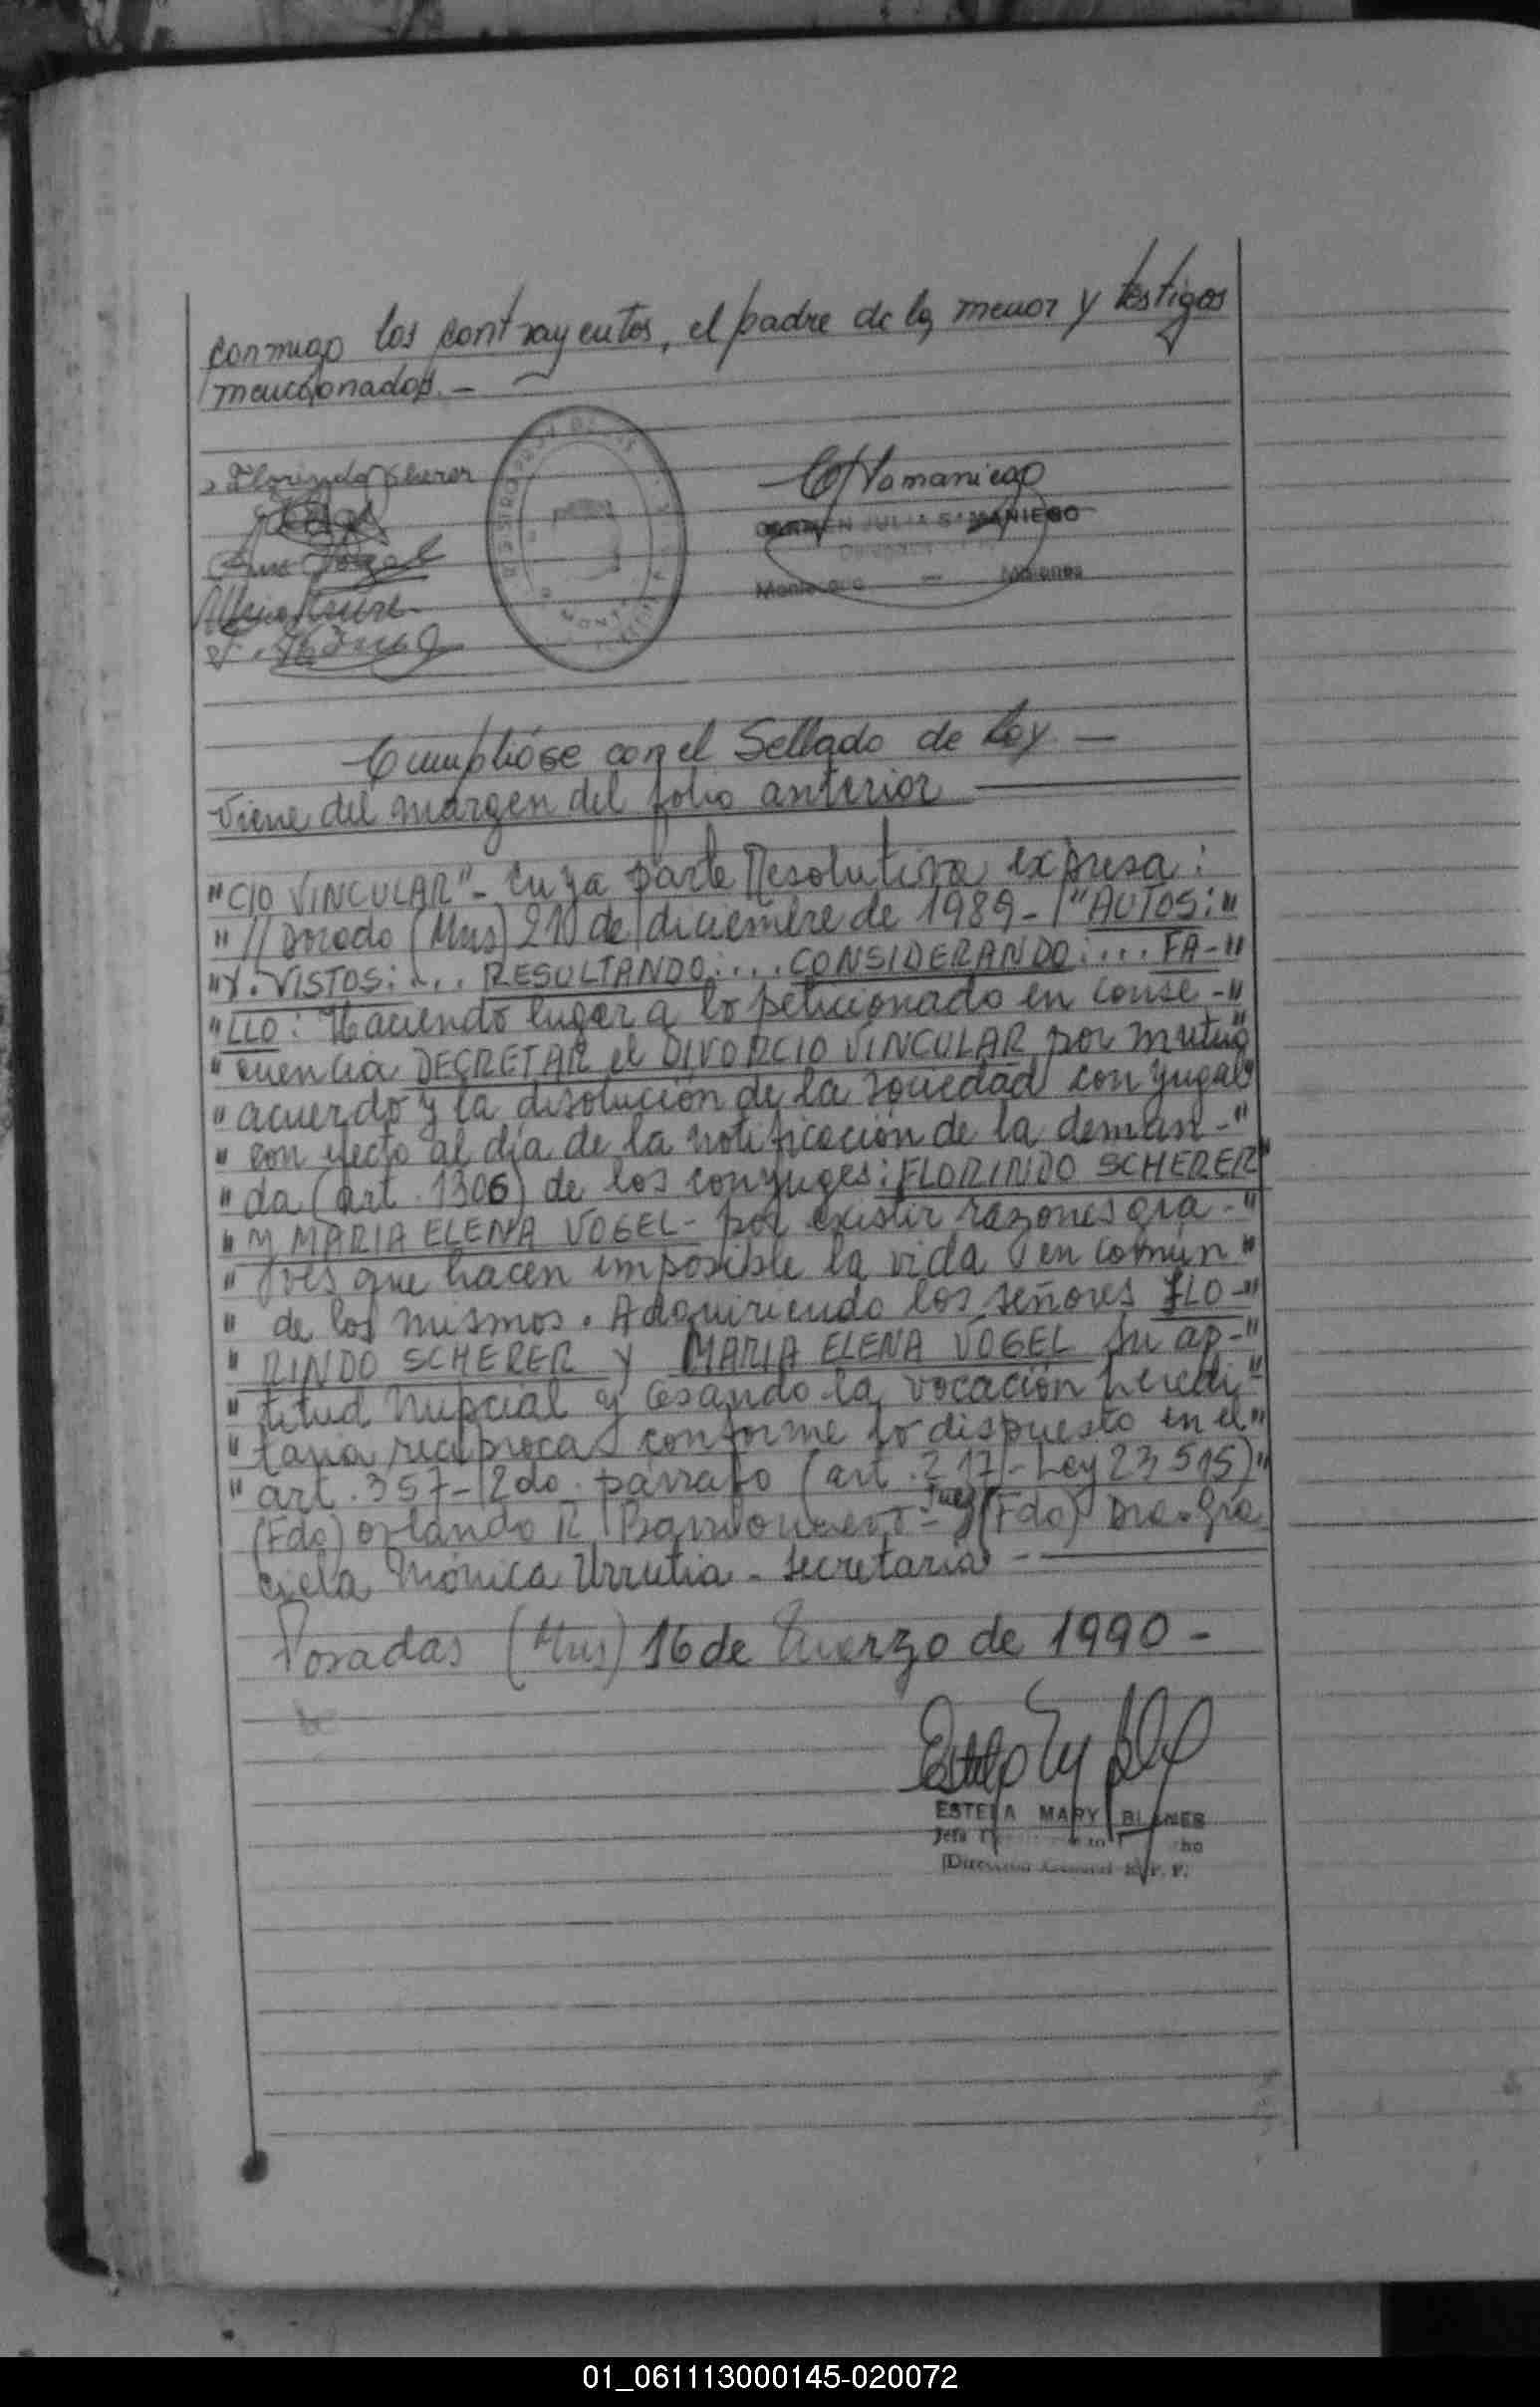 conmigo los contrayentes, el padre de la menor y testigos
mencionados. -
Florindo Scherer
CARMEN JULIA SAMANIEGO
Montecarlo — Misiones
Cumplióse con el Sellado de Ley —
Viene del margen del folio anterior
"CIO VINCULAR"- Cuya parte Resolutiva expresa:
"// Dorado (Mns) 21 de diciembre de 1989 - "AUTOS:"
"Y. VISTOS: ... RESULTANDO: ... CONSIDERANDO: ... FA-"
"LLO: Haciendo lugar a lo peticionado en conse-"
"cuencia DECRETAR el DIVORCIO VINCULAR por mutuo"
"acuerdo y la disolución de la sociedad conyugal"
"con efecto al día de la notificación de la deman-"
"da (art. 1306) de los conyuges: FLORINDO SCHERER"
"y MARIA ELENA VOGEL - por existir razones gra-"
"ves que hacen imposible la vida en común"
"de los mismos. Adquiriendo los señores FLO-"
"RINDO SCHERER y MARIA ELENA VOGEL su ap-"
"titud nupcial y cesando la vocación heredi"
"taria recíproca conforme lo dispuesto en el"
"art. 357- 2do. párrafo (art. 217 - Ley 23515)"
(Fdo) Orlando R Barrionuevo - Juez (Fdo) Dra. Gra
ciela Mónica Urrutia - Secretaria -
Posadas (Mns) 16 de Marzo de 1990 -
ESTELA MARY BLANES
Jefa
Dirección General R. P. P.
01_061113000145-020072